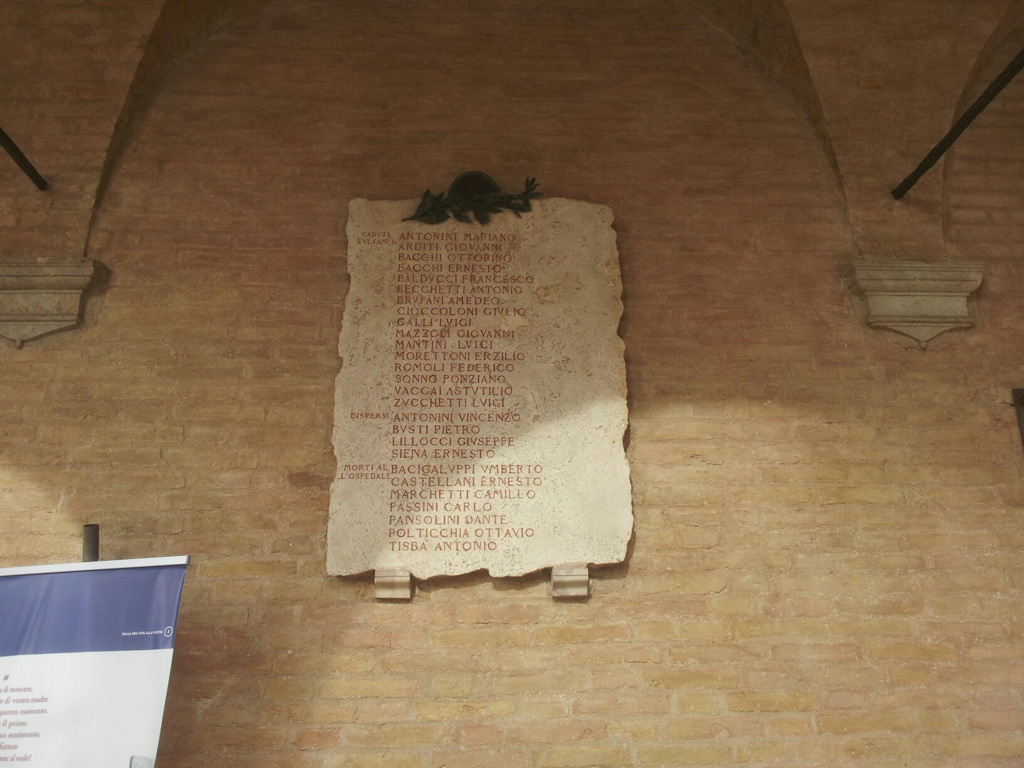 CADUTI ANTONINI MARIANO
SUL CAMPO ARDITI GIOVANNI
BACCHI OTTORINO
BACCHI ERNESTO
BALDVCCI FRANCESCO
BECCHETTI ANTONIO
BRVFANI AMEDEO
CIOCCOLONI GIVLIO
GALLI LVIGI
MAZZOLI GIOVANNI
MANTINI LVIGI
MORETTONI ERZILIO
ROMOLI FEDERICO
SONNO PONZIANO
VACCAI ASTVTILIO
ZVCCHETTI LVIGI
DISPERSI ANTONINI VINCENZO
BVSTI PIETRO
LILLOCCI GIVSEPPE
SIENA ERNESTO
MORTI AL BACIGALVPPI VMBERTO
L'OSPEDALE CASTELLANI ERNESTO
MARCHETTI CAMILLO
PASSINI CARLO
PANSOLINI DANTE
POLTICCHIA OTTAVIO
TISBA ANTONIO
"
di nascere,
di vostra madre
questo momento.
il primo,
sentimento,